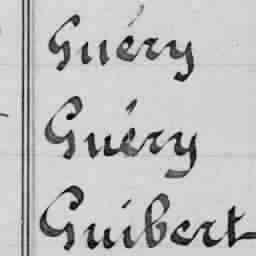 Guéry
Guéry
Guibert